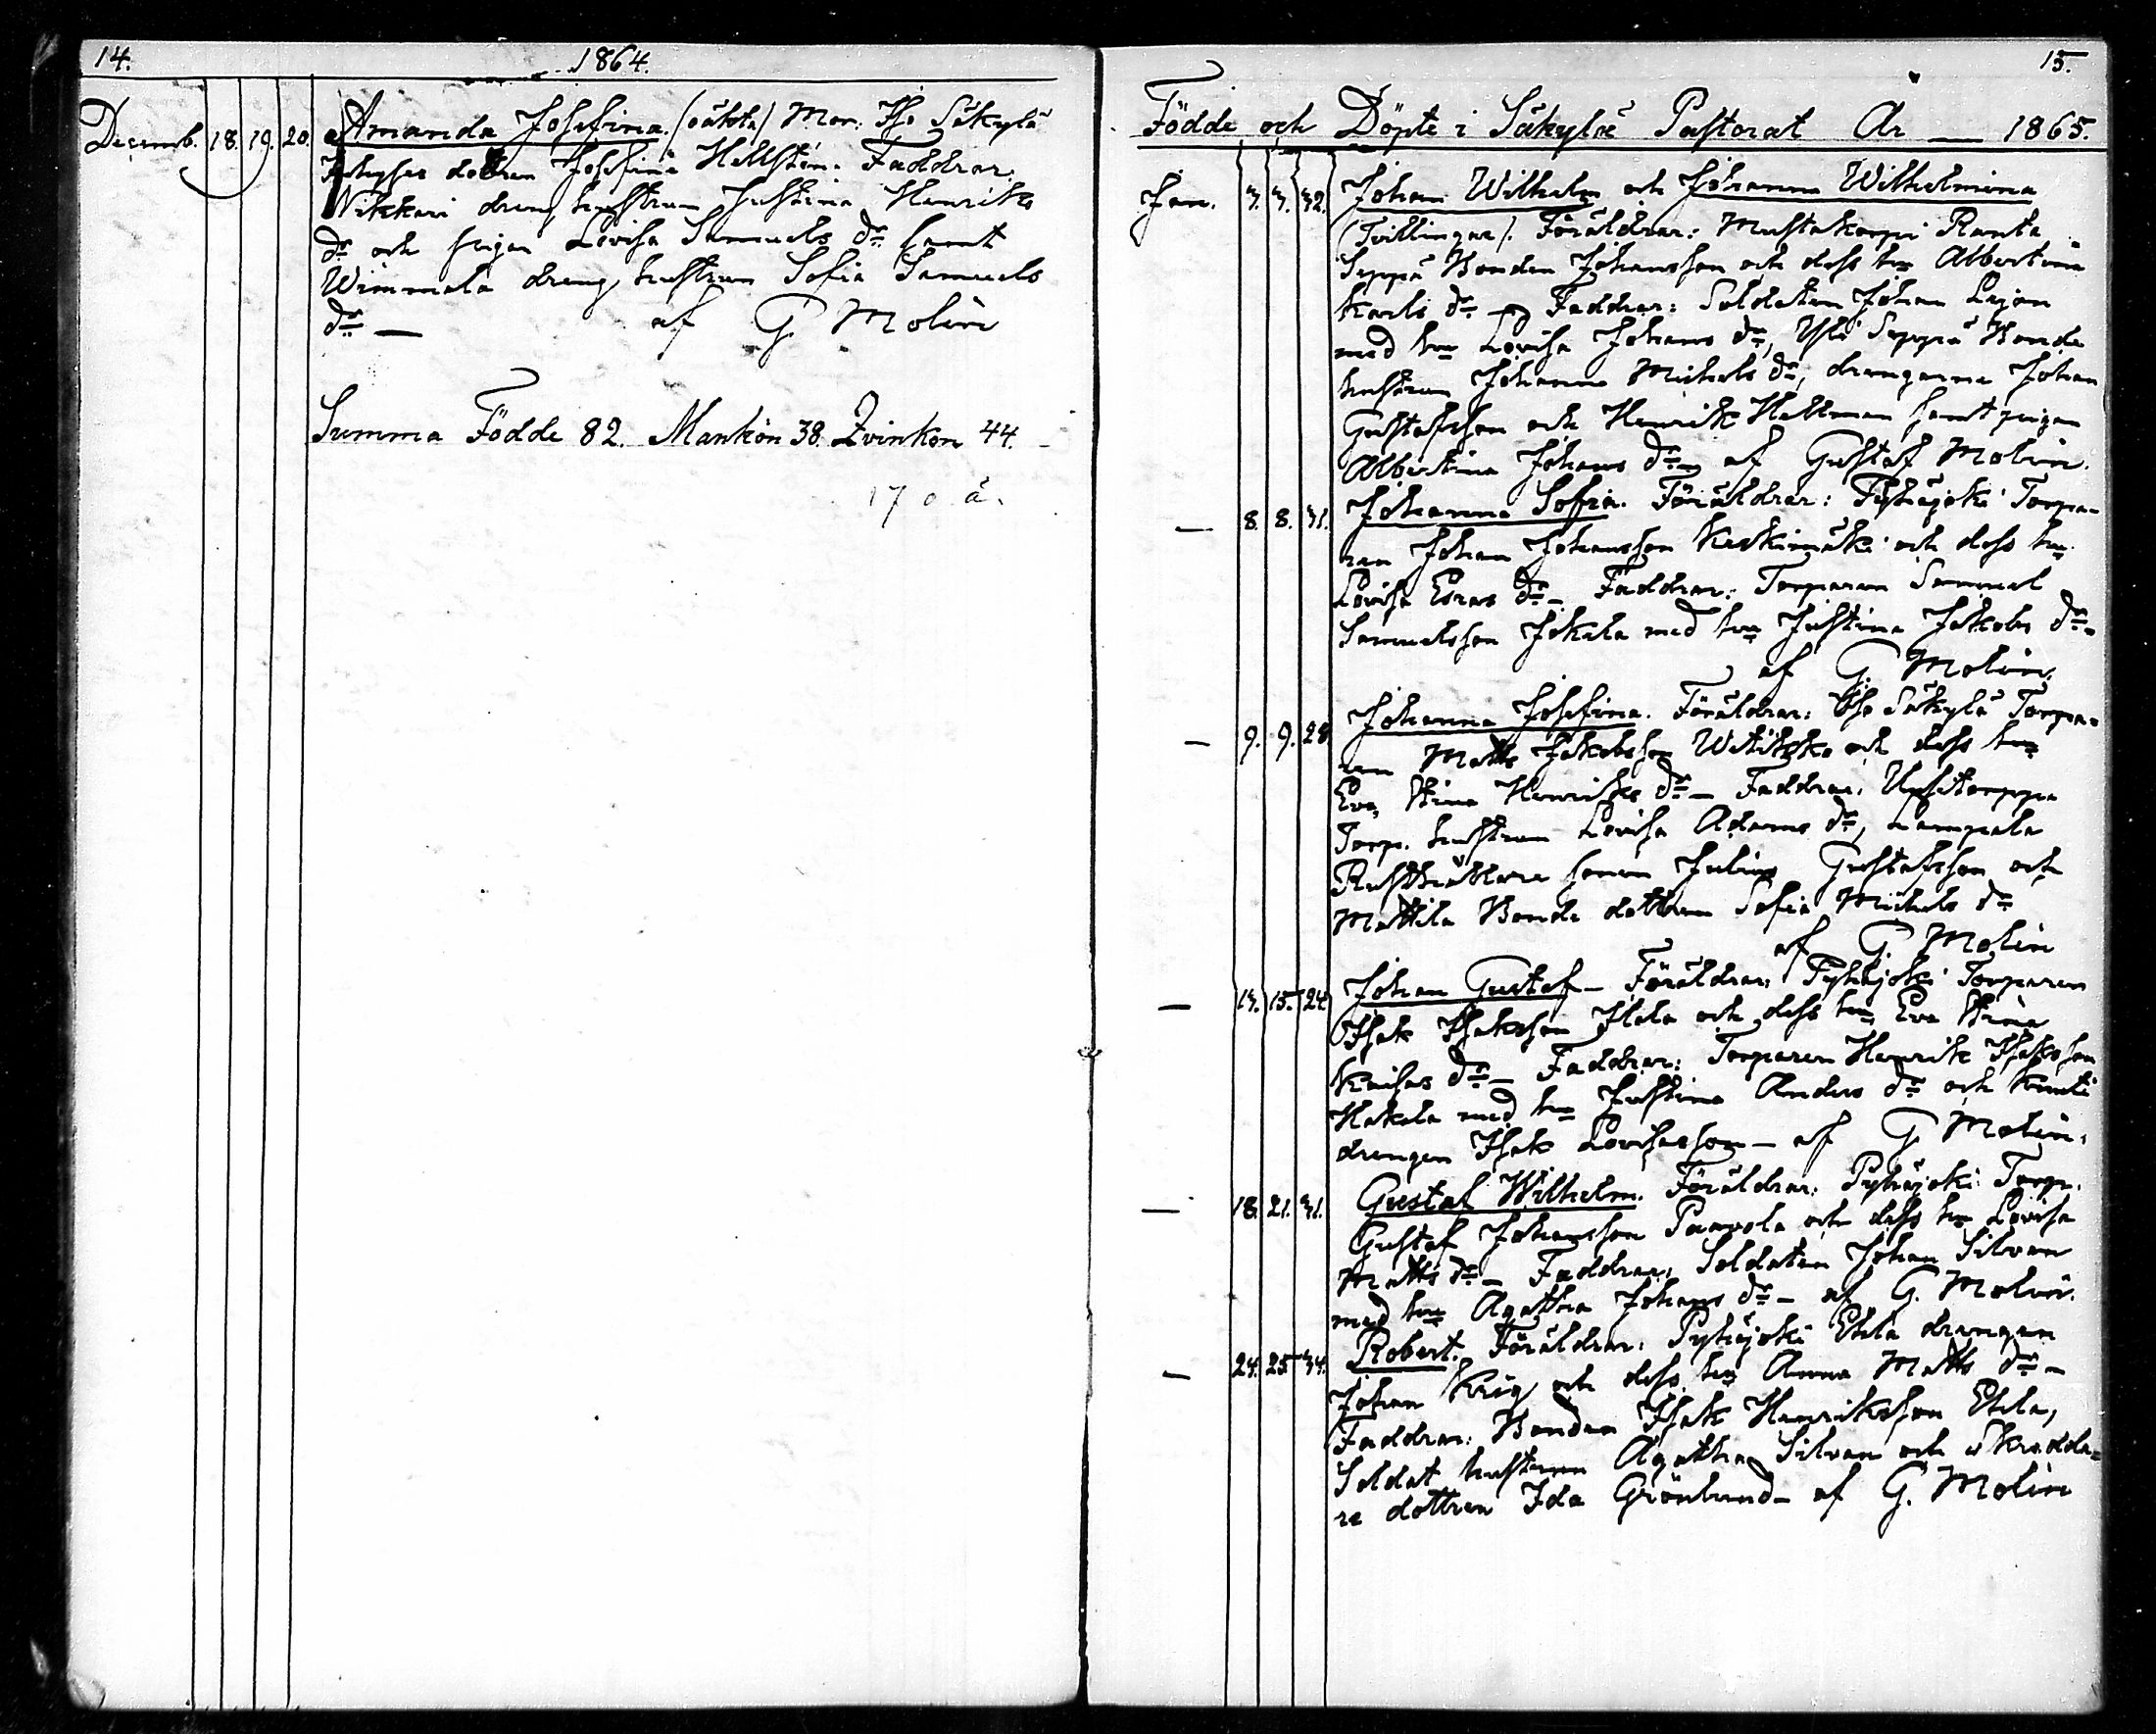 14.
1864.
Decemb. 18. 19. 20. Amanda Josefina. (oäkta) Mor: Iso Säkylä
dottren Josefina Hellstén. Faddrar:
Nikkari dreng hustrun Justina Henriks
dr och pigan Lovisa Samuels dr samt
Wimmala dreng hustrun Sofia Samuels
dr — af G Molin
Summa Födde 82. Mankön 38. Qvinkön 44.
17 o. ä.
15.
Födde och Döpte i Säkylä Pastorat År — 1865.
Jan. 7. 7. 32. Johan Wilhelm och Johanna Wilhelmina
(Tvillingar). Föräldrar: Mustakorpi Ranta
Seppä Bonden Johansson och dess hu Albertina
Karls dr — Faddrar: Soldaten Johan Lejon
med hu Lovisa Johans dr, Yli Seppä Bonde
hustrun Johanna Michels dr, drengarne Johan
Gustafsson och Henrik Hellman samt pigan
Albertina Johans dr — af Gustaf Molin.
— 8. 8. 31. Johanna Sofia. Föräldrar: Pyhäjoki Torpa-
ren Johan Johansson Keskimäki och dess hu
Lovisa Esras dr — Faddrar: Torparen Samuel
Samuelsson Jokela med hu Justina Jakobs dr —
af G. Molin.
— 9. 9. 28. Johanna Josefina. Föräldrar: Iso Säkylä Torpa-
ren Matts Jakobsson och dess hu
Eva Stina Henriks dr — Faddrar: Uusitorppa
Torp. hustrun Lovisa Adams dr, Lampala
Rusthållare sonen Julius Gustafsson och
Mattila Bonde dottren Sofia Michels dr
af G. Molin
— 13. 15. 24. Johan Gustaf — Föräldrar: Pyhäjoki Torparen
Isak Isaksson Ilola och dess hu Eva Stina
Kaisas dr — Faddrar: Torparen Henrik Isaksson
Hakala med hu Justina Anders dr och
drengen Isak Lovisasson — af G. Molin.
— 18. 21. 31. Gustaf Wilhelm. Föräldrar: Pyhäjoki Torp.
Gustaf Johansson Paavola och dess hu Lovisa
Matts dr — Faddrar: Soldaten Johan Silvan
med hu Agatha Johans dr — af G. Molin.
— 24. 25. 34. Robert. Föräldrar: Pyhäjoki Etela drengen
Johan Krig och dess hu Anna Matts dr —
Faddrar: Bonden Isak Henriksson Etela,
Soldat hustrun Agatha Silvan och Skredda-
re dottren Ida Grönlund — af G. Molin